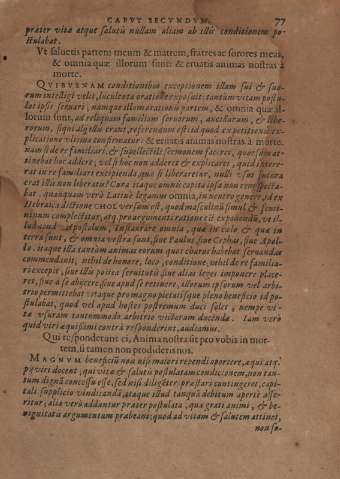 CAPVT SECVNDVM. 77
præter vitæ atque salutis nullam aliam ab illis conditionem po-
stulabat.
Vt saluetis patrem meum & matrem, fratres ac sorores meas,
& omnia quæ illorum sunt: & eruatis animas nostras à
morte.
QVIBVSNAM conditionibus exceptionem illam sui & suo-
rum intelligi velit, luculenta oratione exposuit: tantum vitam postu-
lat ipsis seruari, namque illam orationis partem, & omnia quæ il-
lorum sunt, ad reliquam familiam seruorum, ancillarum, & libe-
rorum, siqui alij illi erant, referendum est: id quod ex petitionis ex-
plicatione vltima confirmatur: & eruatis animas nostras à morte.
nam si de re familiari, & supellectili sermonem faceret, quorsum at-
tinebat hoc addere, vel si hoc non adderet & explicaret, quid
rat in re familiari excipienda, quo si liberaretur, nulli vsui futura
erat illis non liberatis? Cura itaque omnis capita ipsa non
bat. quamquam verò Latinè legamus omnia, in neutro genere, id ex
Hebraica dictione versum est, quod masculinū simul & fœmi-
ninum complectitur, atq. pro argumenti ratione est exponendū, vt il-
lud apud Apostolum, Instaurare omnia, quæ in cælo & quæ in
terra sunt, & omnia vestra sunt, siue Paulus, siue Cephas, siue Apol-
lo. itaque illa tantùm animas eorum quos charos habebat seruandas
commendauit, nihil de honore, loco, conditione, nihil de re familia-
ri excepit, siue illis posteà seruitutē siue alias leges imponere place-
ret, siue à se abycere, siue apud se retinere, illorum ipsorum vel arbi-
trio permittebat vtraque pro magno pietatisque pleno beneficio id po-
stulabat, quod vel apud hostes postremum duci solet, nempe vi-
tæ vsuram tantummodo arbitrio victorum ducendæ. Iam verò
quid viri æquissimi contrà responderint, audiamus.
Qui responderunt ei, Anima nostra sit pro vobis in mor-
tem, si tamen non prodideris nos.
MAGNVM beneficiū non nisi maiori rependi oportere, æqui atq.
pij viri docent, qui vitæ & salutis postulatam conditionem, non tan-
tùm dignā concessu esse, sed nisi diligēter præstari contingeret, capi-
tali supplicio vindicandā, atque illud tanquā debitum apertè asse-
ritur, alia verò adduntur præter postulata, quæ grati animi, & be-
nignitatis argumentum præbeant: quod ad vitam & salutem attinet,
non so-